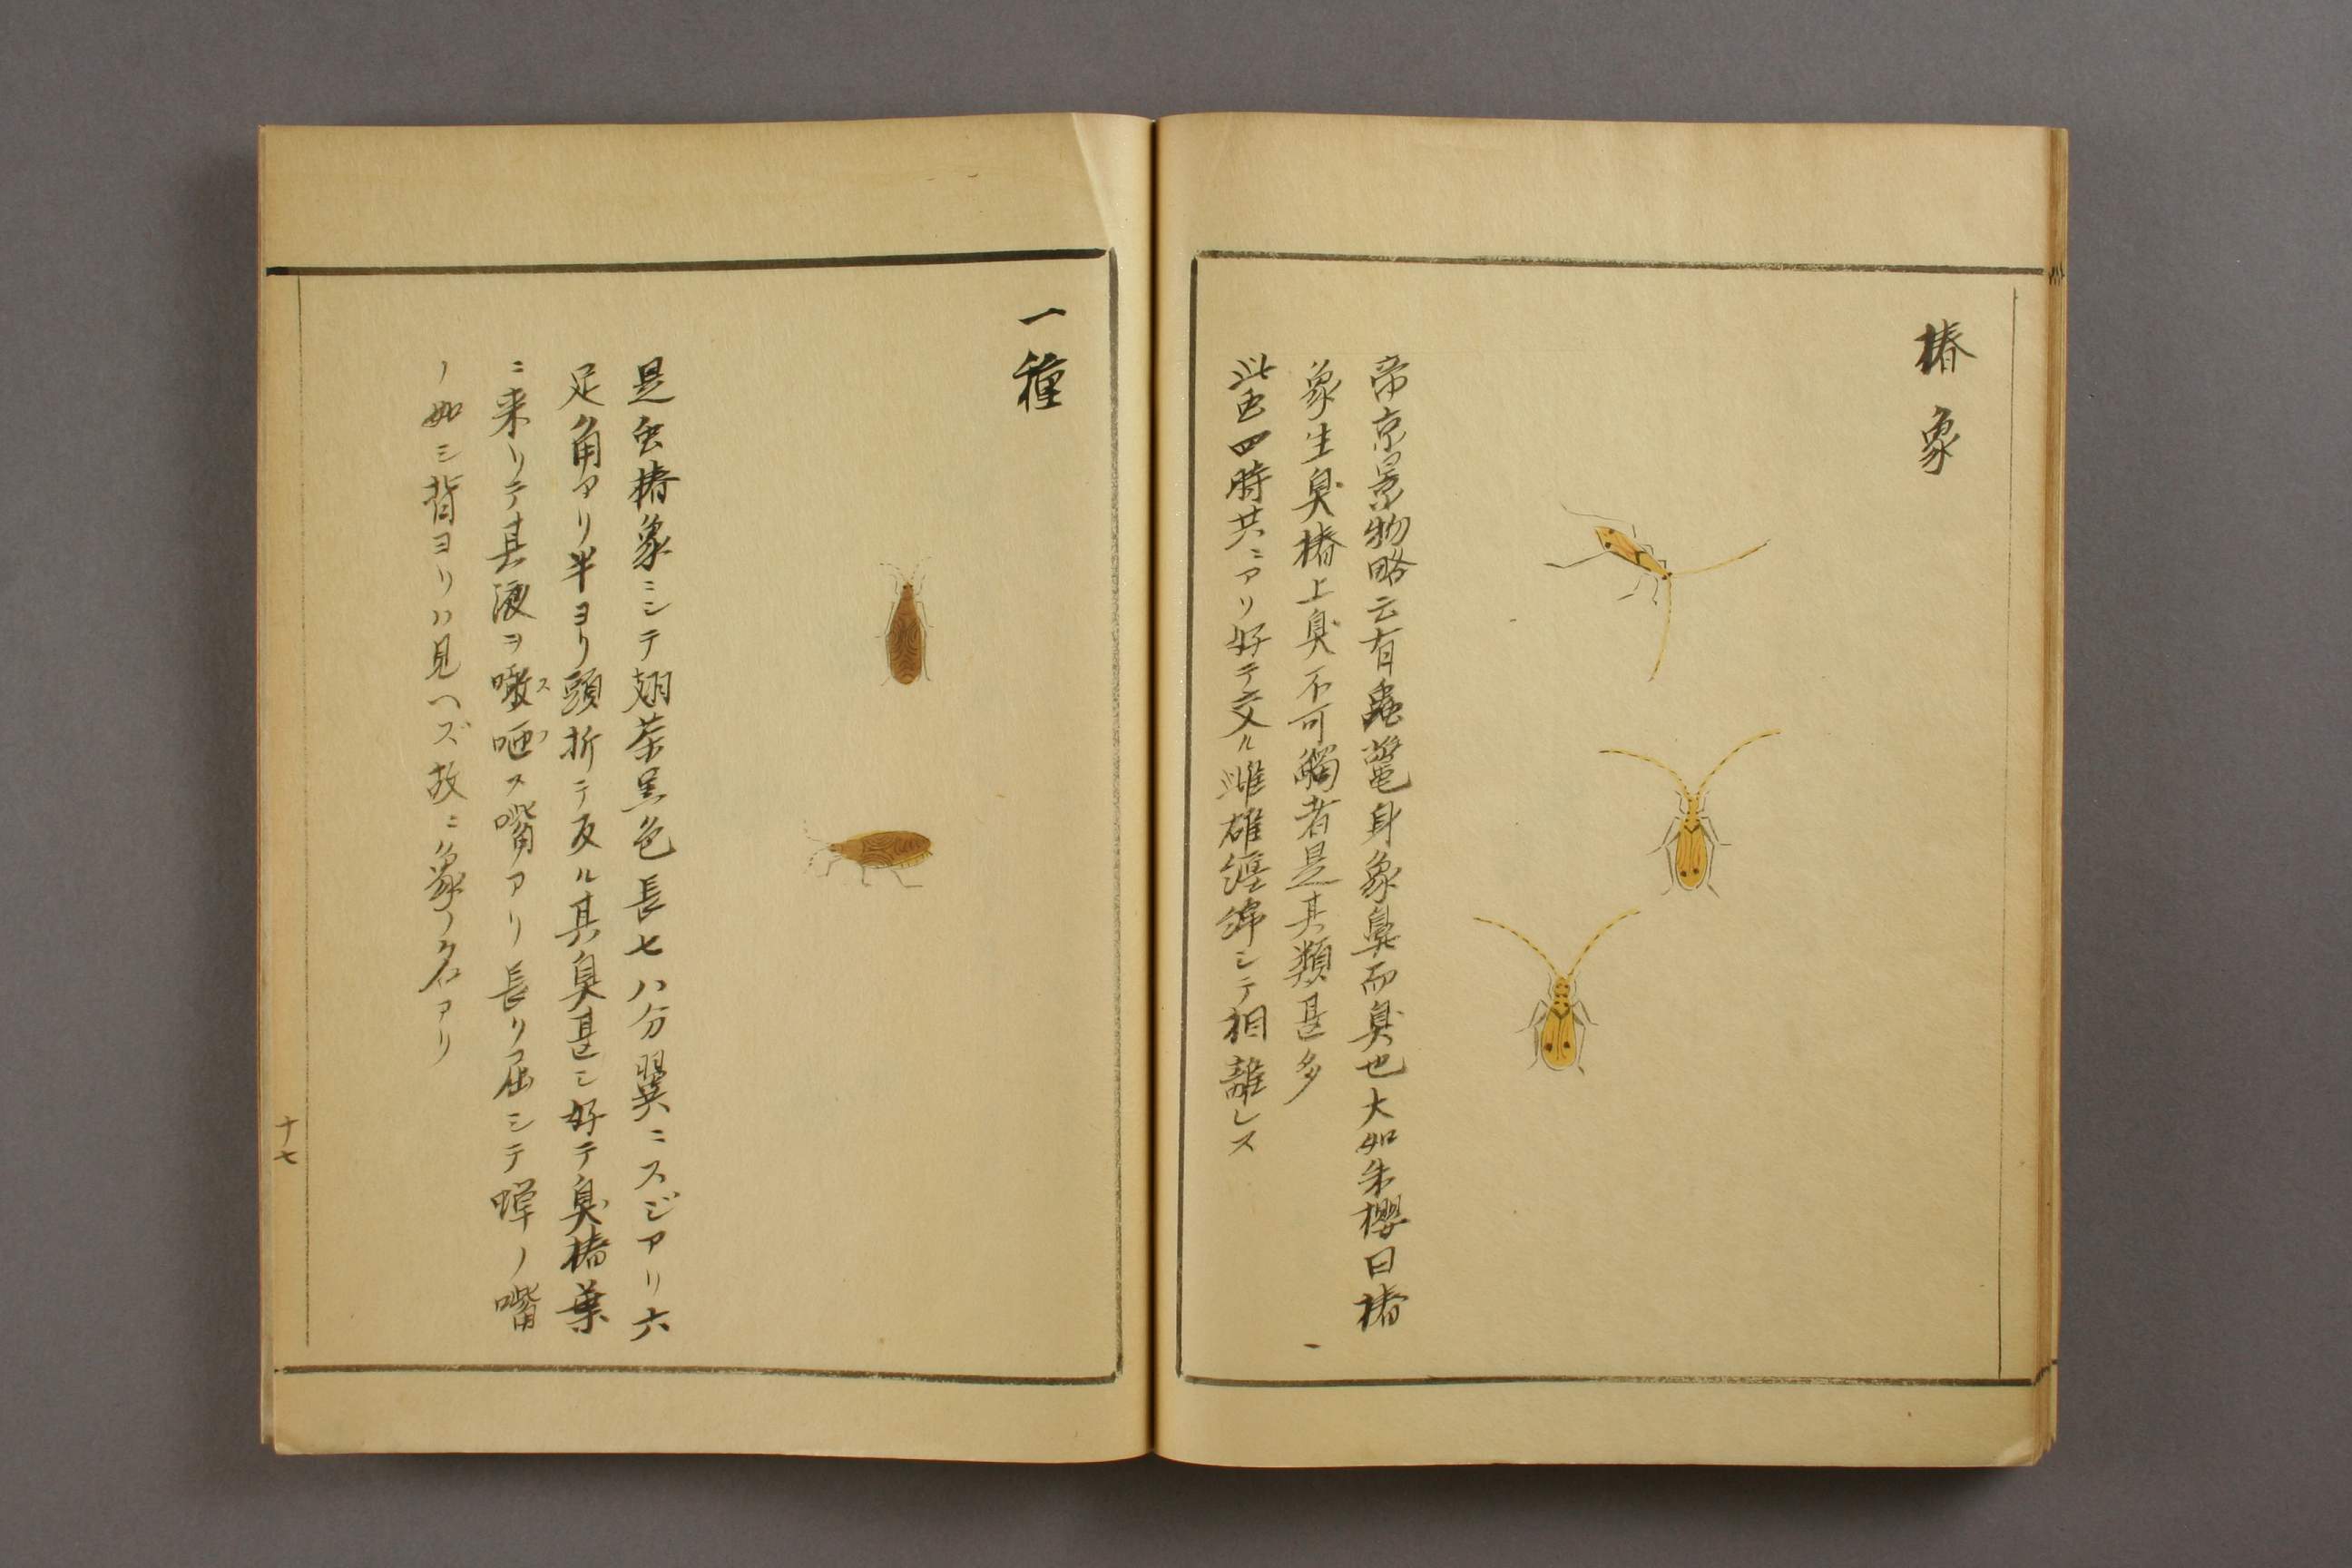 椿象
帝京景物略云有蟲黿身象鼻而臭也大如朱櫻曰椿
象生臭椿上臭不可觸者是其類甚多
此虫四時共ニアリ好テ交ル雌雄纏綿シテ相離レス
一種
是虫椿象ニシテ翅茶黒色長七八分翼ニスジアリ六
足角アリ半ヨリ頭折テ反ル其臭甚シ好テ臭椿葉
ニ来リテ其液ヲ噉哂ス嘴アリ長リ屈シテ蟬ノ嘴
ノ如シ背ヨリハ見ヘズ故ニ象ノ名アリ
十七